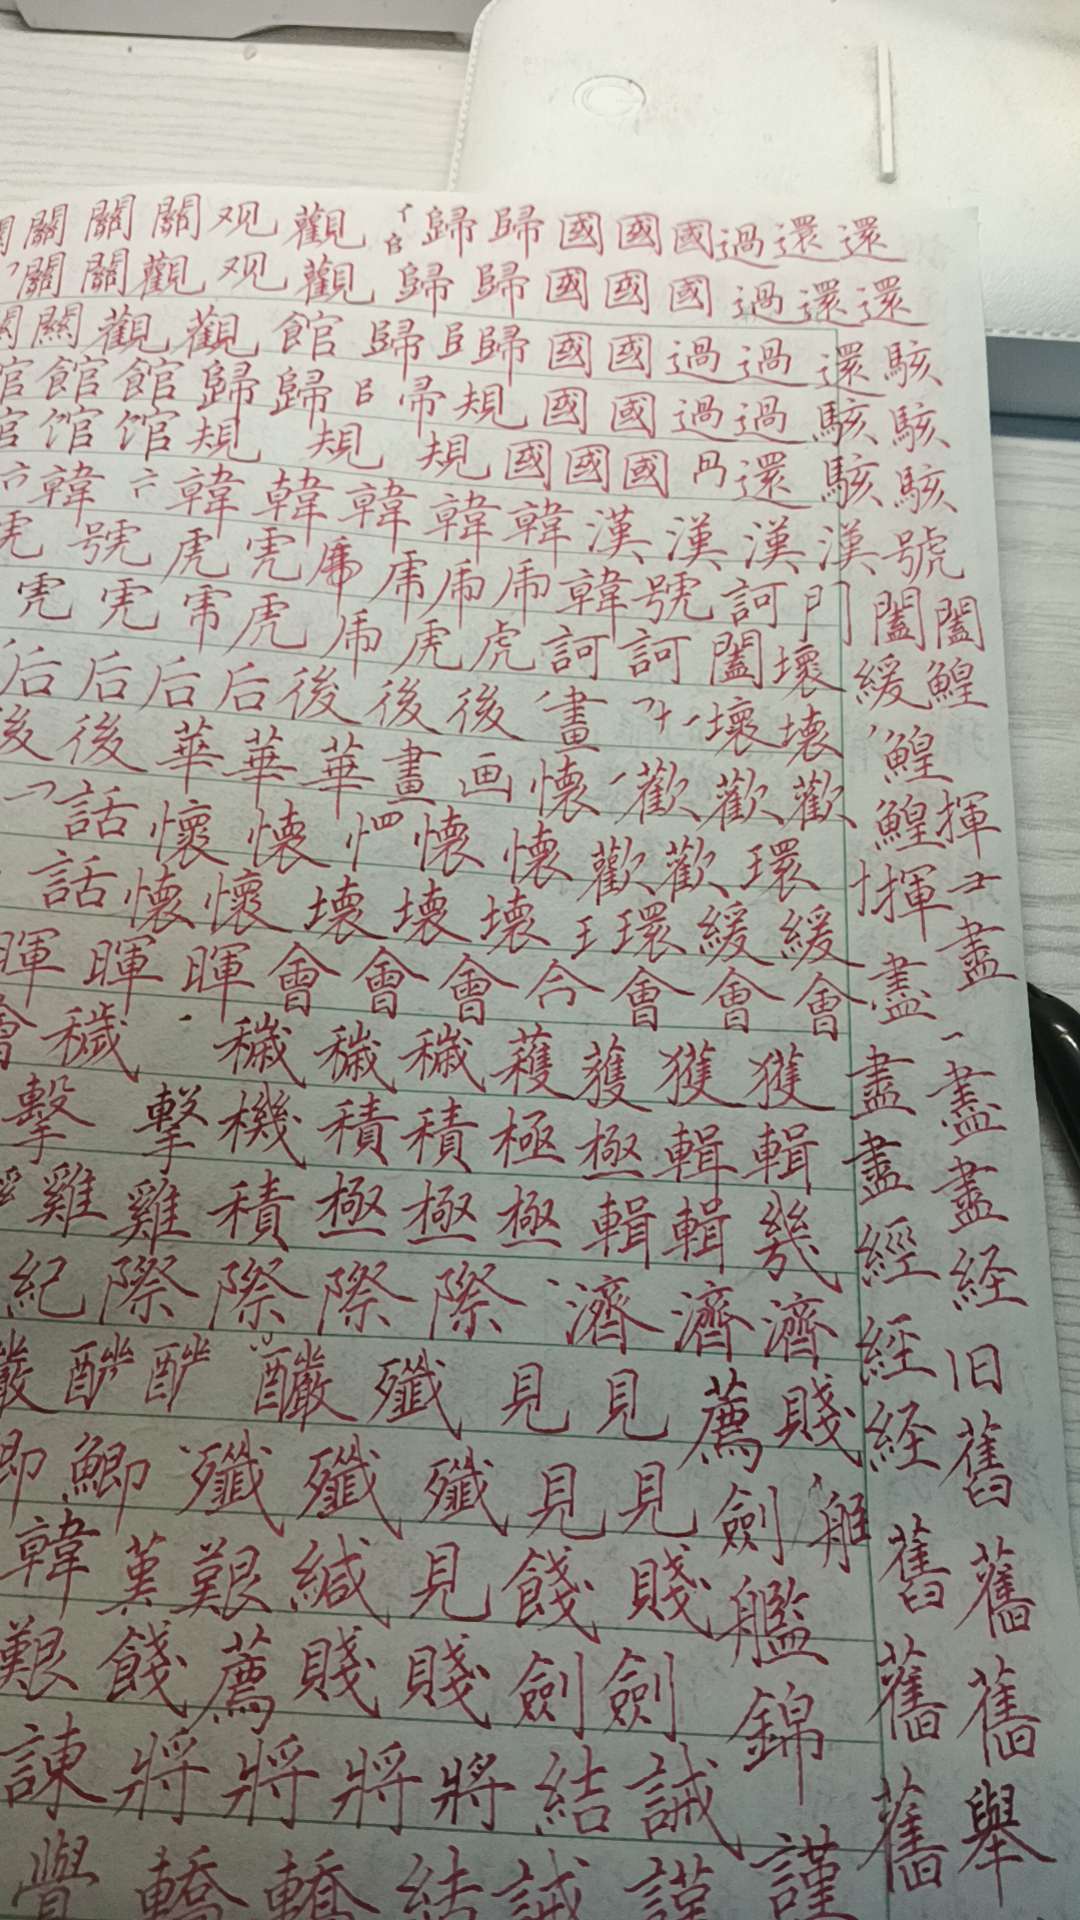 關關關观觀歸歸國國國過還還
關關觀观觀歸歸國國國過還還
關觀觀館歸歸國國過過還駭
館館歸歸帚規國國過過駭駭
馆馆規規規國國國還駭駭
韓韓韓韓韓韓漢漢漢漢號
號虎韓號訶門闔闔
虎虎虎訶訶闔壞緩鰉
后后后后後後後畫壞壞鰉
後後華華華畫画懷歡歡歡鰉揮
話懷懷懷懷歡歡環揮
話懷懷壞壞壞王環緩緩盡
暉暉暉會會會會會會盡
穢穢穢穢穫穫獲獲盡盡
擊擊機積積極極輯輯盡盡
雞雞積極極極輯輯幾經经
紀際際際際濟濟濟經旧
釅殲見見薦賤经舊
即鯽殲殲殲見見劍舊舊
韓艱緘見餞賤艦舊舊
艱餞薦賤賤劍劍錦舊舉
諫將將將將結誡
覺轎轎結誡謹謹